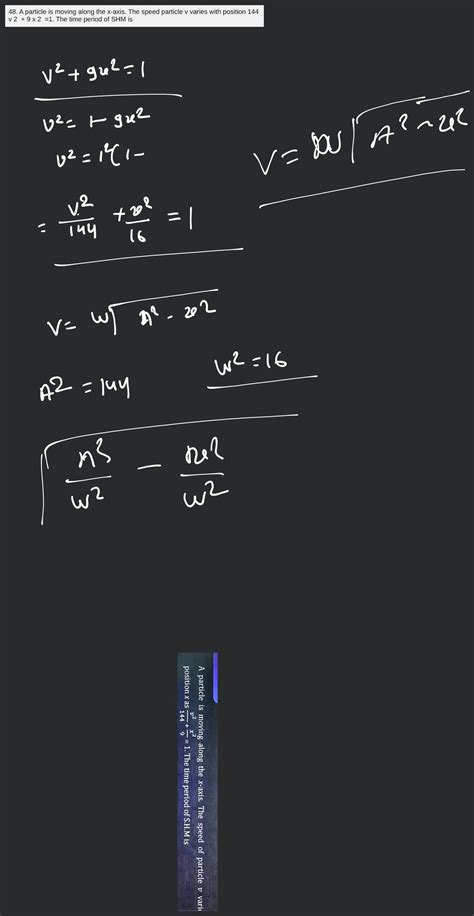 48. A particle is moving along the x-axis. The speed particle v varies with position 144
v 2 + 9 x 2 =1. The time period of SHM is
v² + 9x² = 1
v² = 1 - 9x²
v² = 1²(1-
V = W√A² - x²
= v²/144 + x²/16 = 1
V = W√A² - x²
W² = 16
A² = 144
√A²/W² - x²/W²
A particle is moving along the x-axis. The speed of particle v vari
position x as v²/144 + x²/9 = 1. The time period of S.H.M is